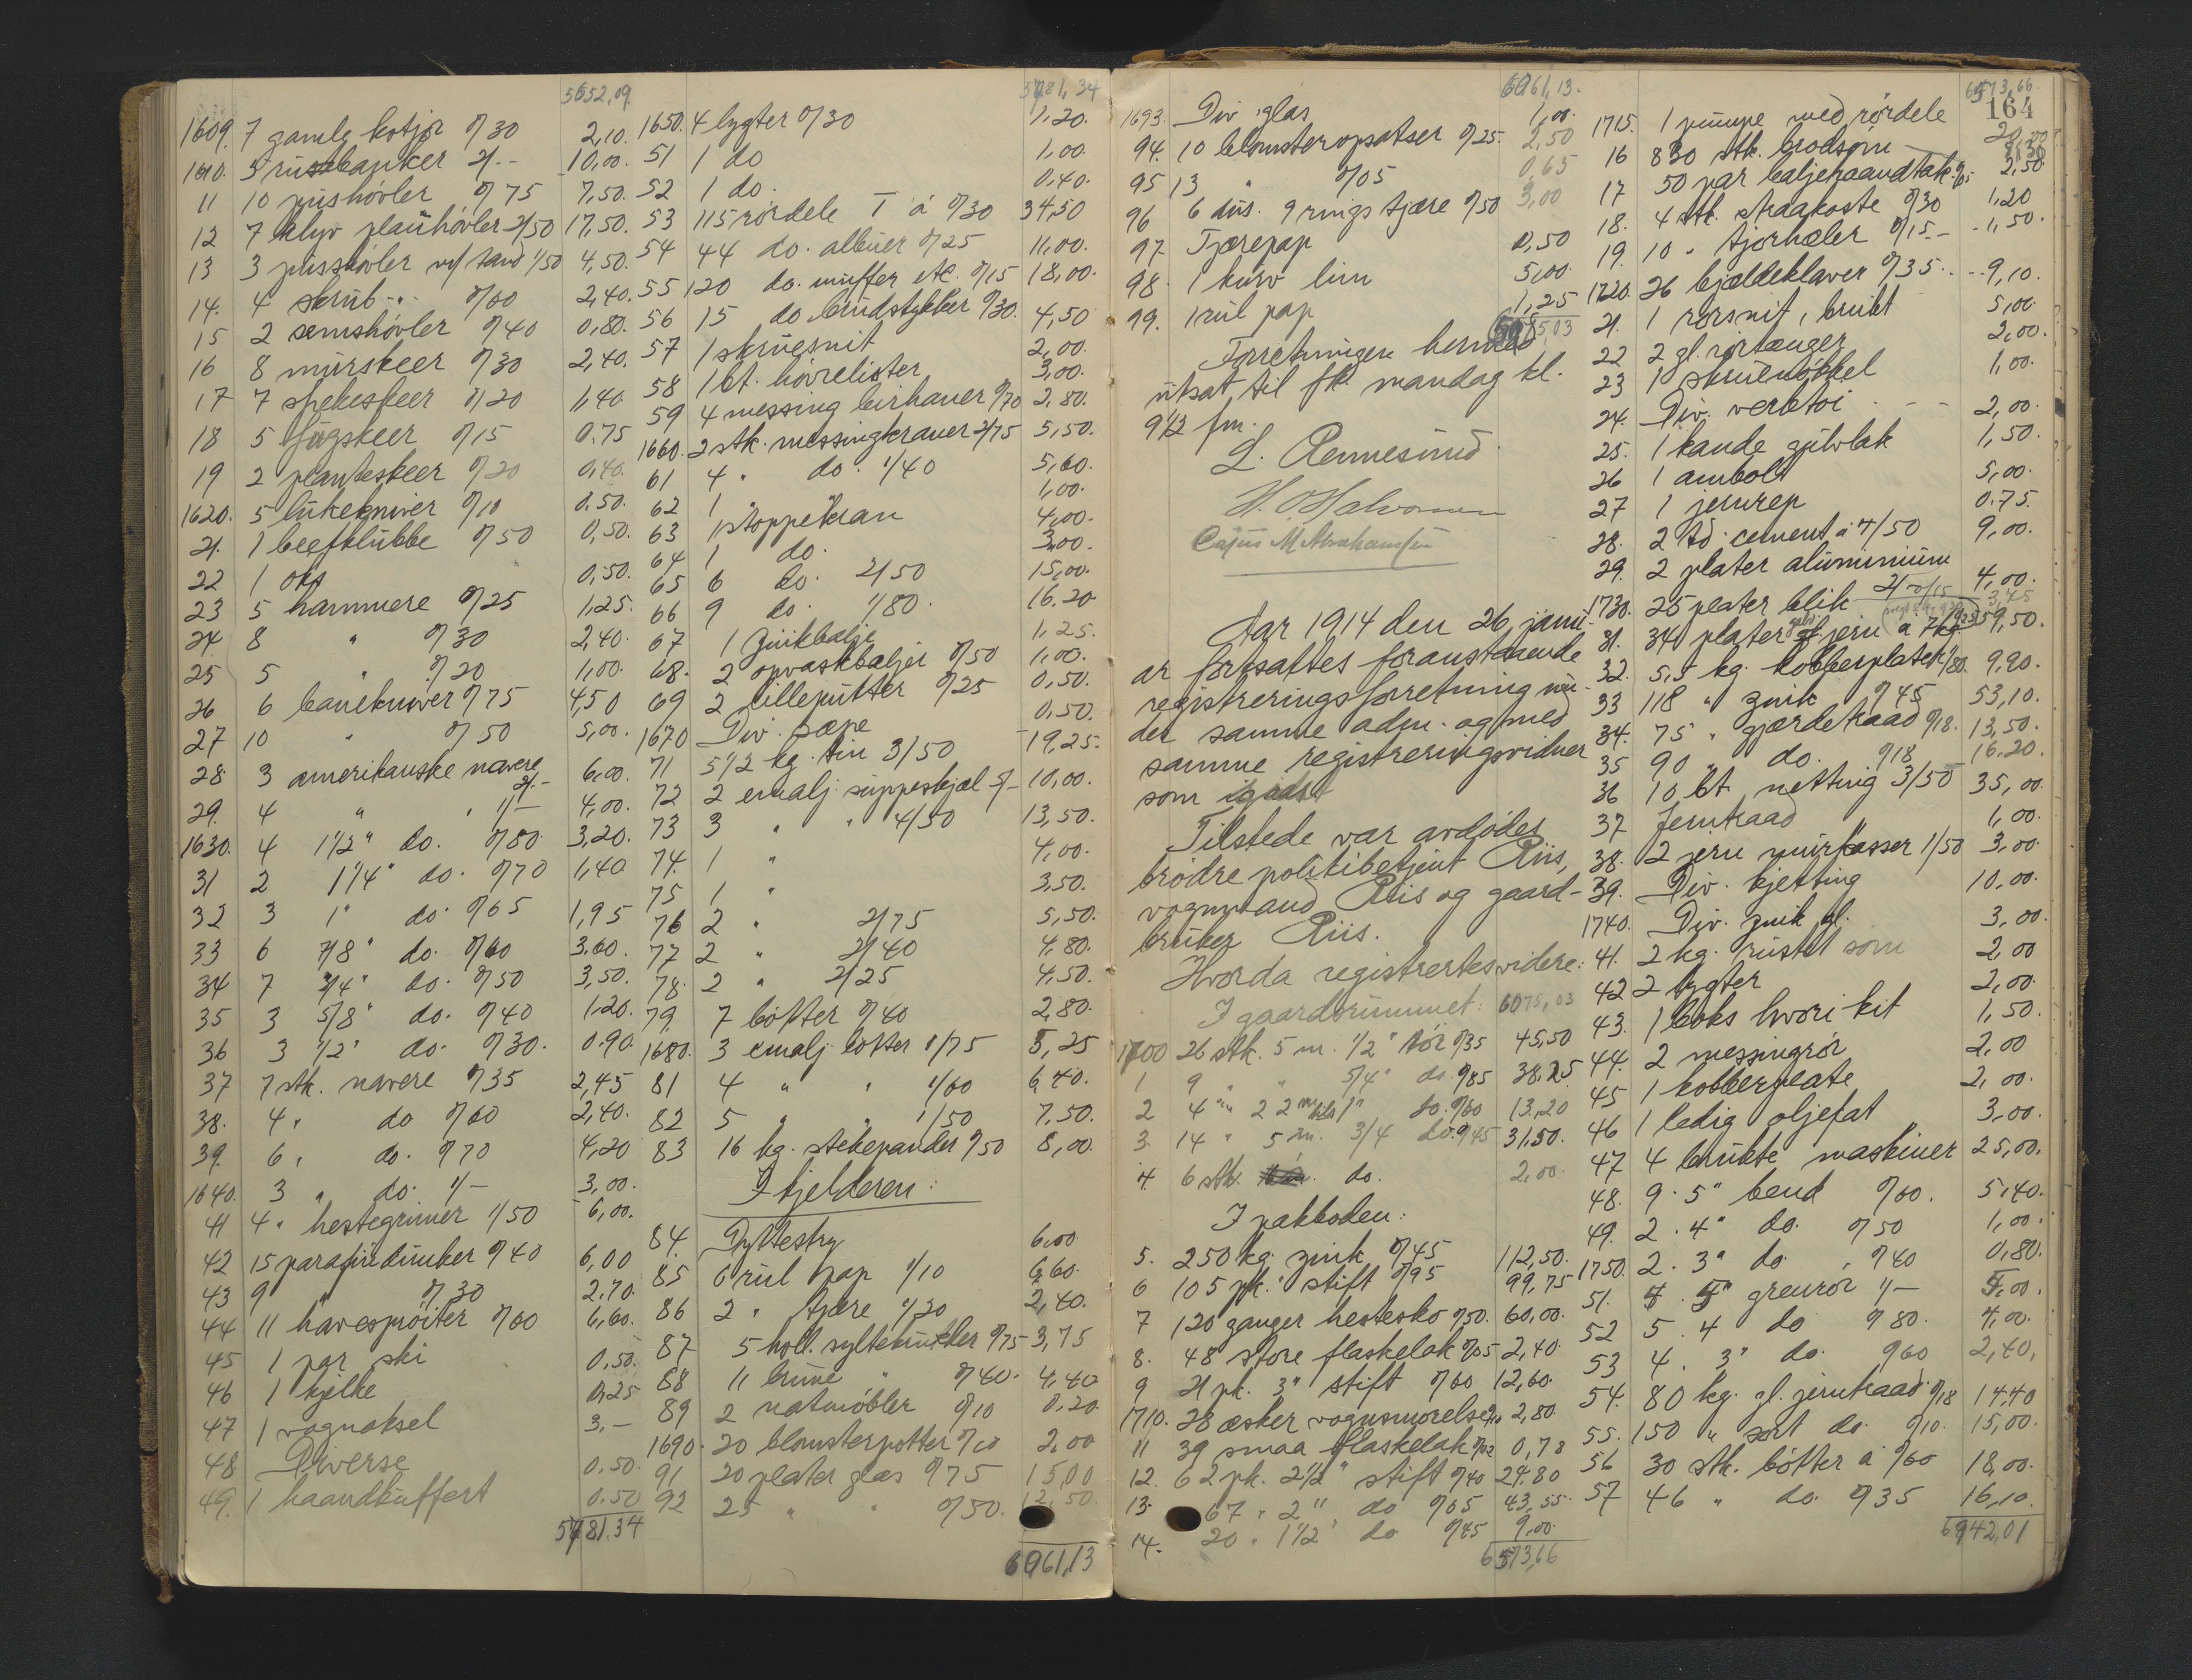 5652,09
1609. 7 gamle kotjor 0/30 2,10.
1610. 5 russebanker 2/- 10,00.
11 10 pushøvler 0/75 7,50.
12 7 klyv planhøvler 2/50 17,50.
13 3 pusshøvler m/ tand 1/50 4,50.
14. 4 skrub -"- 0/60 2,40.
15 2 semshøvler 0/40 0,80.
16 8 murskeer 0/30 2,40.
17 7 spekeskeer 0/20 1,40.
18 5 fugskeer 0/15 0.75
19 2 planteskeer 0/20 0,40.
1620. 5 lukekniver 0/10 0.50.
21. 1 beefklubbe 0/50 0,50.
22 1 oks 0,50.
23 5 hammere 0/25 1,25.
24 8 " 0/30 2,40.
25 5 " 0/20 1,00.
26 6 banekniver 0/75 4,50
27 10 " 0/50 5,00.
28 3 amerikanske navere 2/- 6,00.
29. 4 " " 1/- 4,00.
1630. 4 1 1/2" do. 0/80 3,20.
31 2 1 1/4" do. 0/70 1,40
32 3 1" do. 0/65 1,95
33 6 7/8" do. 0/60 3.60.
34 7 3/4" do. 0/50 3,50.
35 3 5/8" do. 0/40 1.20.
36 3 1/2" do. 0/30. 0.90.
37 7 stk. navere 0/35 2,45
38. 4 " do 0/60 2,40.
39. 6 " do. 0/70 4,20
1640. 3 " do. 1/- 3,00.
41 4 " hestegrimer 1/50 6,00.
42 15 parafindunker 0/40 6,00
43 9 " 0/30 2.70.
44 11 havesprøiter 0/60 6,60.
45 1 par ski 0,50.
46 1 kjelke 0,25
47 1 vognaksel 3.-
48 Diverse 0.50.
49. 1 haandkuffert 0.50
5781.34
5781,34
1650. 4 lygter 0/30 1.20.
51 1 do 1,00.
52 1 do. 0.40.
53 115 rørdele T á 0/30 34,50
54 44 do. albuer 0/25 11,00.
55 120 do. muffer etc. 0/15 18,00.
56 15 do brudstykker 0/30. 4,50
57 1 skruesnit 2,00.
58 1 bt. høvrelister 3,00.
59 4 messing beirhaner 0/70 2,80.
1660. 2 stk. messingkraner 2/75 5,50.
61 4 " do. 1/40 5,60.
62 1 " " 1,00.
63 1 stoppekran 4,00.
64 1 do. 3,00.
65 6 do. 2/50 15,00.
66 9 do. 1/80. 16.20
67 1 zinkbalje 1,25.
68. 2 opvaskbaljer 0/50 1,00.
69 2 lilleputter 0/25 0,50.
1670 Div. sæpe 0,50.
71 5 1/2 kg. tin 3/50 19,25.
72 2 emalj. suppeskjæl 5/- 10,00.
73 3 " " 4/50 13,50.
74. 1 " 4,00.
75 1 " 3,50.
76 2 " 2/75 5,50.
77 2 " 2/40 4,80.
78. 2 " 2/25 4,50.
79. 7 bøtter 0/40 2,80.
1680. 3 emalj. bøtter 1/75 5,25
81 4 " " 1/60 6,40.
82 5 " " 1/50 7,50.
83 16 kg. stekepander 0/50 8,00.
I kjelderen:
84. Dyttestry 6,00
85 6 rul pap 1/10 6,60.
86 2 " tjære 1/20 2,40.
87 5 holl. syltekrukker 0/75 3,75
88 11 brune " 0/40. 4,40
89 2 natmøbler 0/10 0.20.
1690. 20 blomsterpotter 0/10 2,00
91 20 plater glas 0/75 15,00
92 25 " " 0/50. 12,50.
6061,13
6061,13.
1693. Div. glas 1,00.
94. 10 blomsteropsatser 0/25. 2,50
95 13 " 0/05 0,65
96 6 dus. 9 rings tjære 0/50 3,00
97 Tjærepap 0,50
98. 1 kurv lim 5,00.
99. 1 rul pap 1,25
6075,03
Forretningen hermed
utsat til fk. mandag kl.
9 1/2 fm.
L. Rennesund
H. O. Halvorsen
Cajus M Abrahamsen
Aar 1914 den 26. janu-
ar fortsattes foranstaaende
registreringsforretning un-
der samme adm. og med
samme registreringsvidner
som
Tilstede var avdødes
brødre politibetjent Riis,
vognmand Riis og gaard-
bruker Riis.
Hvorda registrertes videre:
I gaardsrummet: 6075,03
1700 26 stk. 5 m. 1/2" rør 0/35 45,50
1 9 " " 5/4" do. 0/85 38.25
2 4 " 22 m 1" do. 0/60 13,20
3. 14 " 5 m. 3/4 do. 0/45 31,50.
4. 6 stk. do. 2,00.
I pakboden:
5. 250 kg. zink 0/45 112,50.
6 105 pk. stift 0/95 99,75
7 120 ganger hestesko 0/50. 60,00.
8. 48 store flaskelak 0/05 2,40.
9 21 pk. 3" stift 0/60 12,60.
1710. 28 æsker vognsmørelse 0/10 2,80.
11 39 smaa flaskelak 0/02 0,78
12. 62 pk. 2 1/2" stift 0/40 24.80
13. 67 " 2" do 0/65 43,55.
14. 20 " 1 1/2" do 0/45 9,00.
6573,66
6573,66.
164
1715. 1 pumpe med rørdele 20,00
16 830 stk. brodsøm 8,30
17 50 par baljehaandtak 0/05 2,50
18. 4 stk. straakoste 0/30 1,20
19. 10 " tjorhæler 0/15.- 1,50.
1720. 26 bjældeklaver 0/35. 9,10.
21. 1 rørsnit, brukt 5,00
22 2 gl. rørtænger 2,00.
23 1 skruenøkkel 1,00.
24. Div. verktøi 2,00.
25. 1 kande gulvlak 1,50.
26 1 ambolt 5,00.
27 1 jernrep 0.75.
28. 2 td. cement á 4/50 9,00.
29. 2 plater aluminium 2/- 4,00.
1730. 25 plater blik 0/15 3,45
31. 34 plater galv jern á 7 kg 0/25 59,50.
32. 5,5 kg. kobberplater 1/80. 9,90.
33 118 " zink 0/45 53,10.
34. 75 " gjærdetraad 0/18. 13,50.
35 90 " do. 0/18 16.20.
36 10 bt. netting 3/50 35,00
37 Jerntraad 1,00.
38. 2 jern murkasser 1/50 3,00.
39. Div. kjetting 10,00.
1740. Div. zink bl. 3,00.
41. 2 kg. rustet søm 2,00
42 2 lygter 2,00.
43. 1 boks hvori kit 1,50.
44. 2 messingrør 2,00
45 1 kobberplate 2,00.
46 1 ledig oljefat 3,00.
47 4 brukte maskiner 25,00.
48. 9 . 5" bend 0/60. 5,40.
49. 2 . 4" do. 0/50 1,00.
1750. 2 . 3" do. 0/40 0,80.
51. 5" grenrør 1/- 5,00.
52 5 . 4 do 0/80. 4,00.
53 4 . 3" do. 0/60 2,40.
54. 80 kg. gl. jerntraad 0/18 14,40
55. 150 " sort do. 0/10. 15,00.
56 30 stk. bøtter á 0/60 18,00.
57 46 " do. 0/35 16,10.
6942,01